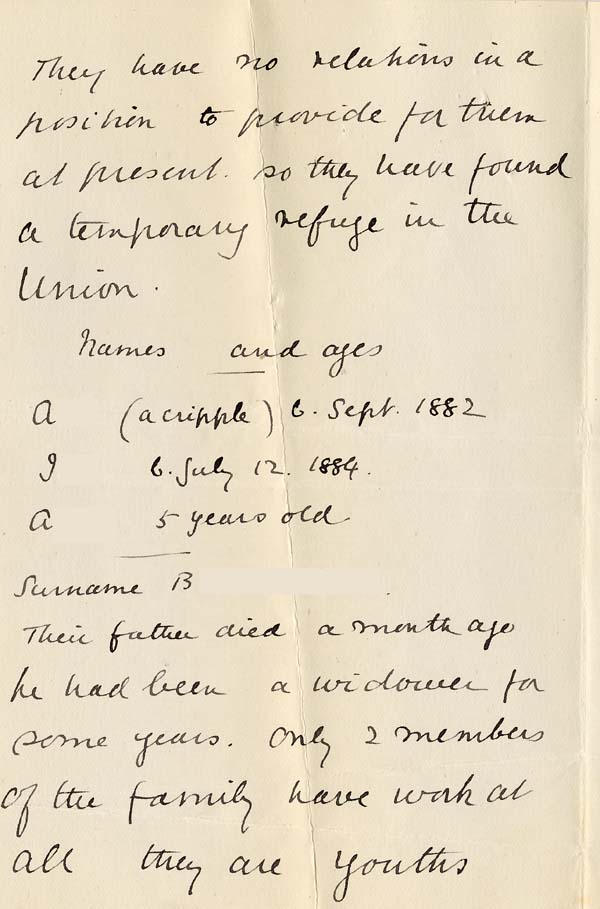 They have no relations in a
position to provide for them
at present. so they have found
a temporary refuge in the
Union.
Names and ages
A (a cripple) b. Sept. 1882
I b. July 12. 1884.
A 5 years old
Surname B
Their father died a month ago
he had been a widower for
some years. Only 2 members
of the family have work at
all they are youths